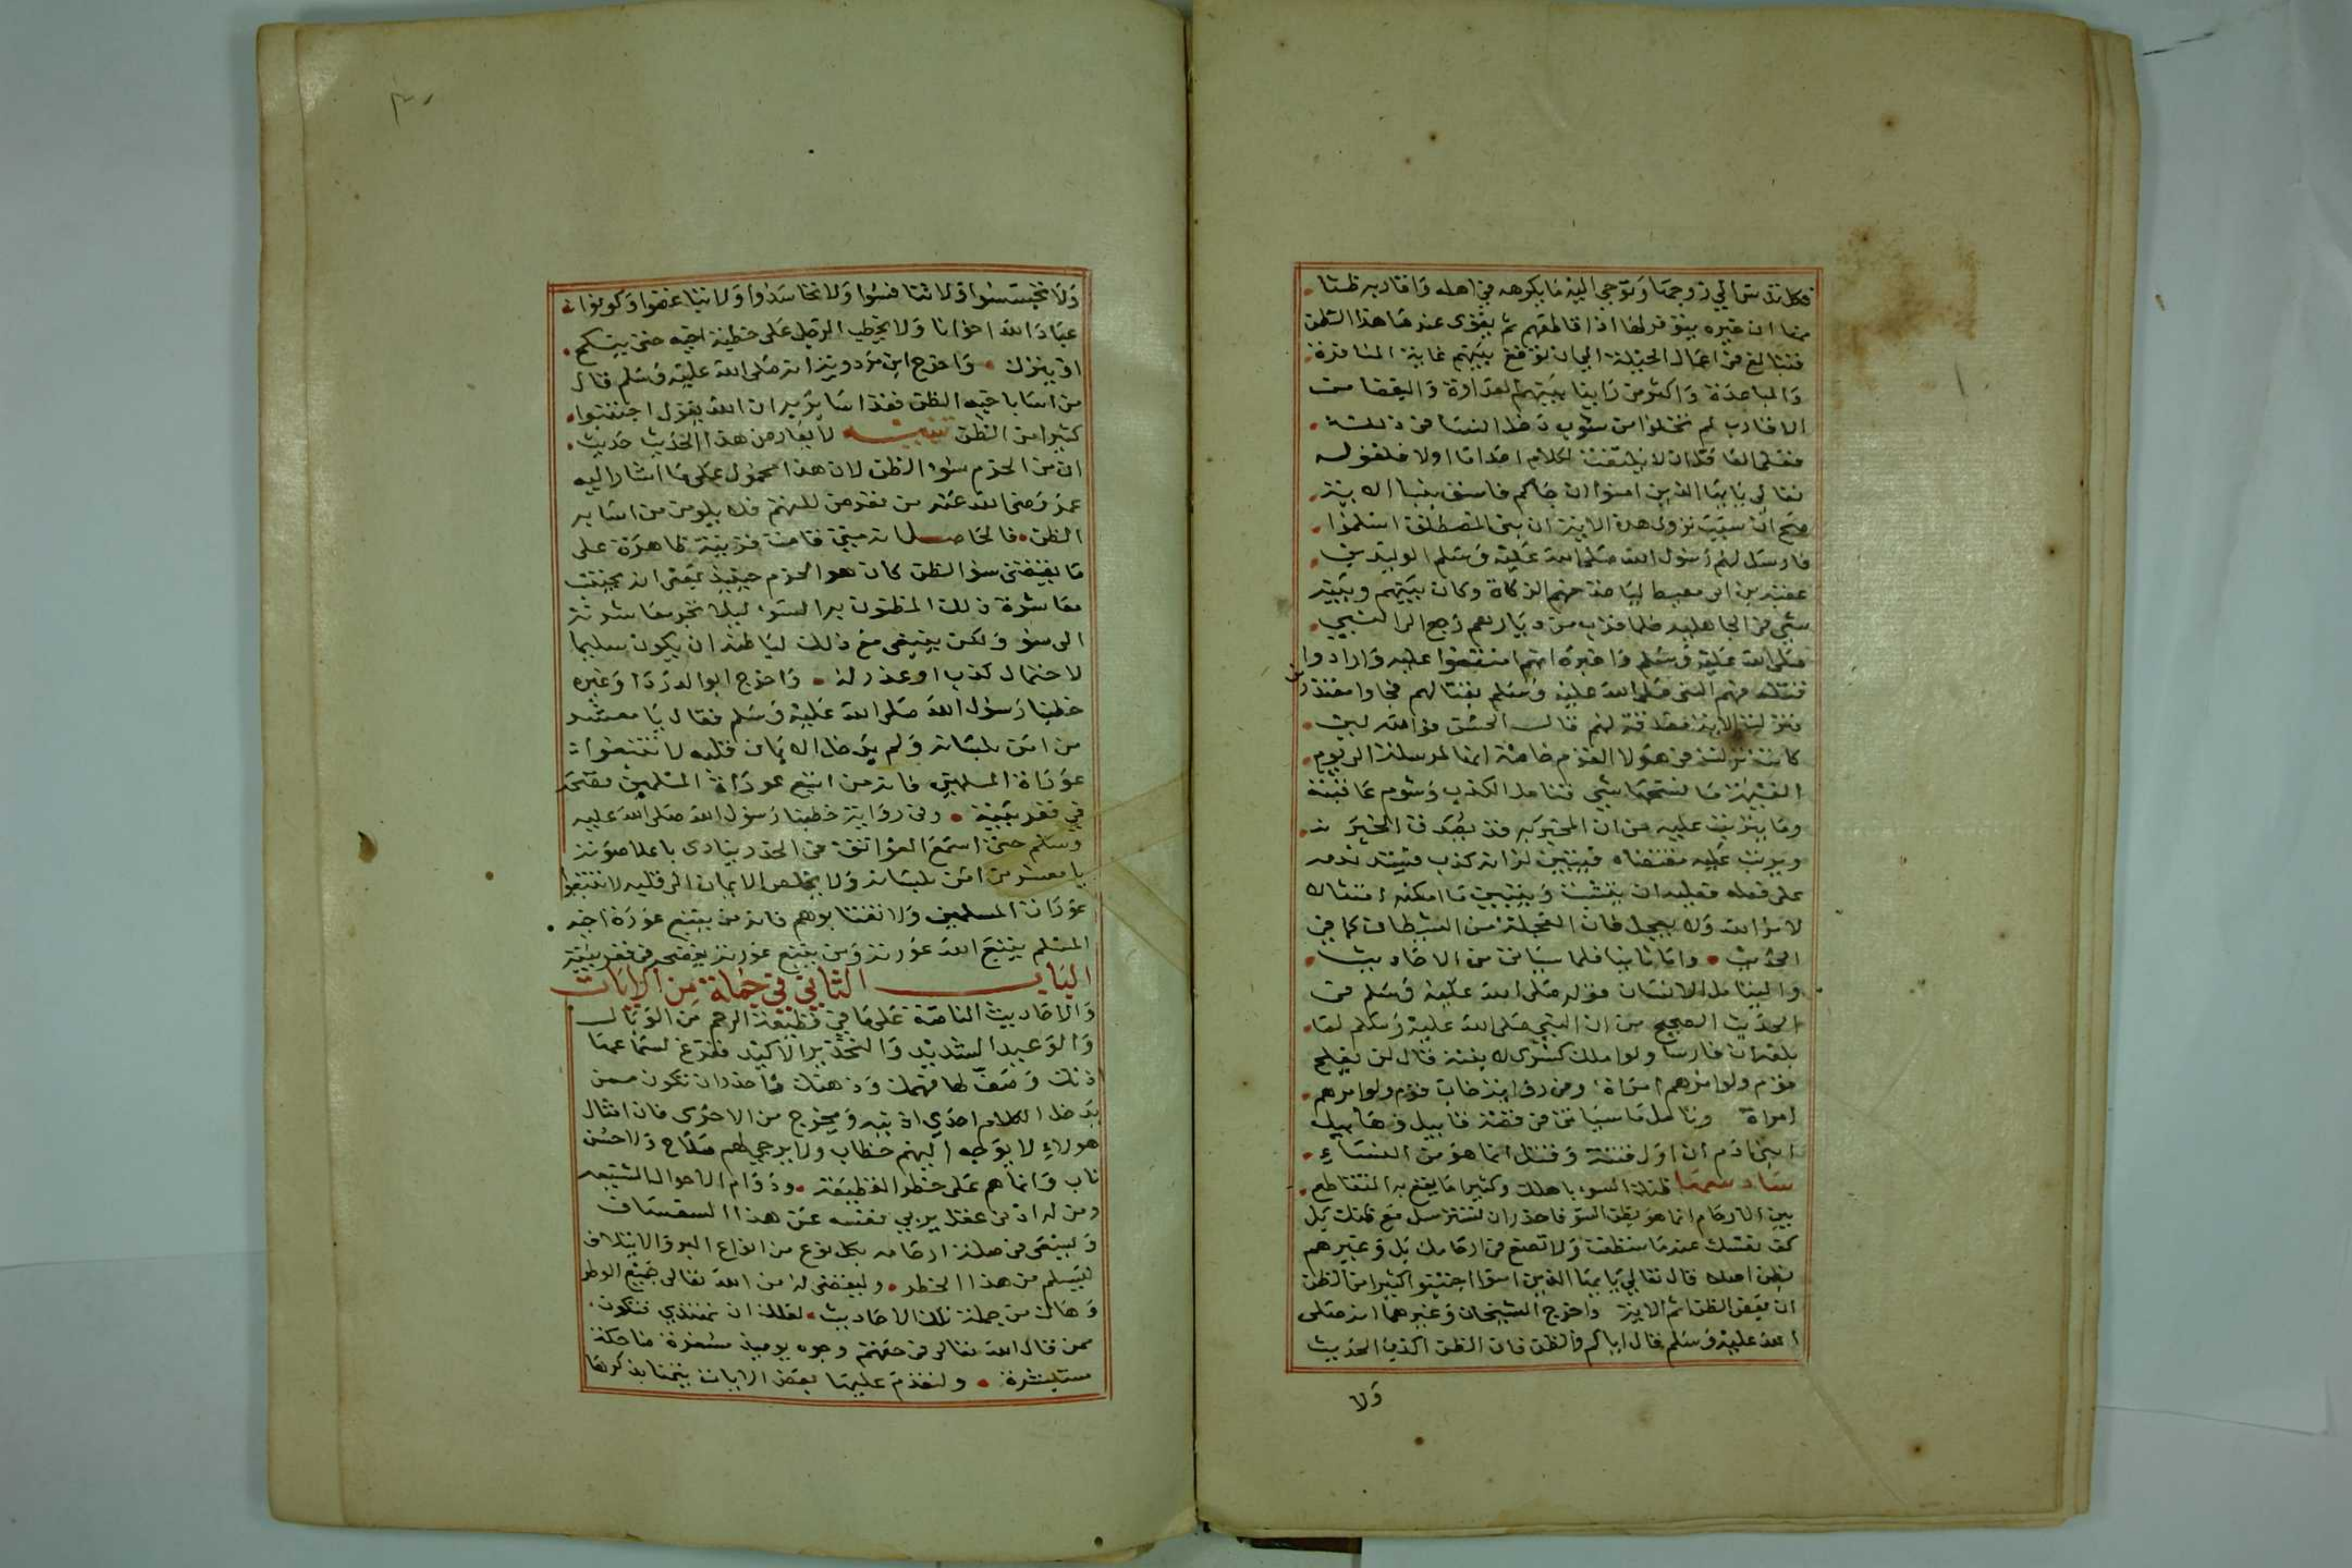 فكل تدس الي زوجها وتوحي اليه ما يكرهه في اهله واقاربه ظنا
منها ان خيره يتوفر لها اذا قاطعهم ثم يقوى عندها هذا الظن
فتبالغ في اعمال الحيلة الى ان توقع بينهم غاية المنافرة
والمباعدة واكثر من راينا بينهم العداوة والبغضا من
الاقارب لم تختلوا من شوب دخل النسا في ذلك
فعلى العاقل ان لا يلتفت لكلام احداما اولا فلقوله
تعالى يايها الذين امنوا ان جاكم فاسق بنبا الاية
صح ان سبب نزول هذه الاية ان بنى المصطلق اسلموا
فارسل لهم رسول الله صلى الله عليه وسلم الوليد بن
عقبة بن ابي معيط لياخذ منهم الزكاة وكان بينهم وبينه
شي في الجاهلية فلما قرب من ديارهم رجع الى النبي
صلى الله عليه وسلم واخبره انهم امتنعوا عليه وارادوا
قتله فهم النبي صلى الله عليه وسلم بقتالهم فجاوا معتذرين
فنزلت الاية مصدقة لهم قال الحسن فوالله لين
كانت نزلت في هولا القوم خاصة انها لمرسلة الى يوم
القيمة ما نسخها شي فتامل الكذب وشوم عاقبته
وما يترتب عليه من ان المخبر به قد يصدق المخبر به
ويرتب عليه مقتضاه فيتبين له انه كذب فيشتد ندمه
على فعله فعليه ان يتثبت ويتبين ما امكنه امتثالا
لامر الله ولا يعجل فان العجلة من الشيطان كما في
الحديث • واما ثانيا فلما سياتي من الاحاديث
وليتامل الانسان قوله صلى الله عليه وسلم في
الحديث الصحيح من ان النبي صلى الله عليه وسلم لما
بلغه ان فارسا ولوا ملك كسرى لابنته قال لن يفلح
قوم ولوا امرهم امراة وفي رواية خاب قوم ولوا امرهم
امراة وتامل ما سياتي في قصة قابيل وهابيل
ابني ادم ان اول فتنة وقتل انما هو من النساء
سادسها ظنك السوء باهلك وكثيرا ما يقع به التقاطع
بين الارحام انما هو بظن السو فاحذر ان تسترسل مع ظنك بل
كف نفسك عندما تنظفت ولا تصنع في ارحامك بل وغيرهم
بظن اصلا قال تعالى يايها الذين امنوا اجتنبوا كثيرا من الظن
ان بعض الظن اثم الاية واخرج الشيخان وغيرهما انه صلى
الله عليه وسلم قال اياكم والظن فان الظن اكذب الحديث
ولا
ولا تجسسوا ولا تنافسوا ولا تحاسدوا ولا تباغضوا وكونوا
عباد الله اخوانا ولا يخطب الرجل على خطبة اخيه حتى ينكح
او يترك • واخرج ابن مردويه انه صلى الله عليه وسلم قال
من اسا باخيه الظن فقد اسا بربه ان الله يقول اجتنبوا
كثيرا من الظن تنبيه لا يعارض هذا الحديث حديث
ان من الحزم سوء الظن لان هذا محمول على ما اشار اليه
عمر رضي الله عنه من تعرض للتهم فلا يلومن من اسا به
الظن • فالحاصل انه متى قامت قرينة ظاهرة على
ما يقتضي سو الظن كان هو الحزم حينيذ بمعنى انه يجتنب
معاشرة ذلك المظنون به السوء ليلا تجر معاشرته
الى سو ولكن ينبغي مع ذلك لباطنه ان يكون سليما
لاحتمال كذب او عذر له • واخرج ابوا الدردا وغيره
خطبنا رسول الله صلى الله عليه وسلم فقال يا معشر
من امن بلسانه ولم يدخل الايمان قلبه لا تتبعوا
عوراة المسلمين فانه من اتبع عوراة المسلمين يفضحه
في قعر بيته • وفي رواية خطبنا رسول الله صلى الله عليه
وسلم حتى اسمع العواتق في الخدر ينادي باعلا صوته
يا معشر من امن بلسانه ولا يخلص الايمان الى قلبه لا تتبعوا
عورات المسلمين ولا تغتابوهم فانه من يتبع عورة اخيه
المسلم يتبع الله عورته ومن يتبع عورته يفضحه في قعر بيته
الباب الثاني في جملة من الايات
والاحاديث الناصة على ما في قطيعة الرحم من الوبال
والوعيد الشديد والتحذير الاكيد ففرغ لسماعها
ذنك وصف لها فهمك وذهنك واحذر ان تكون ممن
يدخل الكلام احدى اذنيه ويخرج من الاخرى فان امثال
هولاء لا يوجه اليهم خطاب ولا يرجى لهم صلاح ولا حسن
ماب وانما هم على خطر القطيعة • ودوام الاحوال الشنيعه
ومن له ادنى عقل يربي نفسه عن هذا السفساف
وليسعى في صلة ارحامه بكل نوع من انواع البر والايتلاف
ليسلم من هذا الخطر • وليقضى له من الله تعالى جميع الوطر
وهاك من جملة تلك الاحاديث لعلك ان تهتدي فتكون
ممن قال الله تعالى في حقهم وجوه يوميذ مسفرة ضاحكة
مستبشرة • ولنقدم عليها بعض الايات تيمنا بذكرها